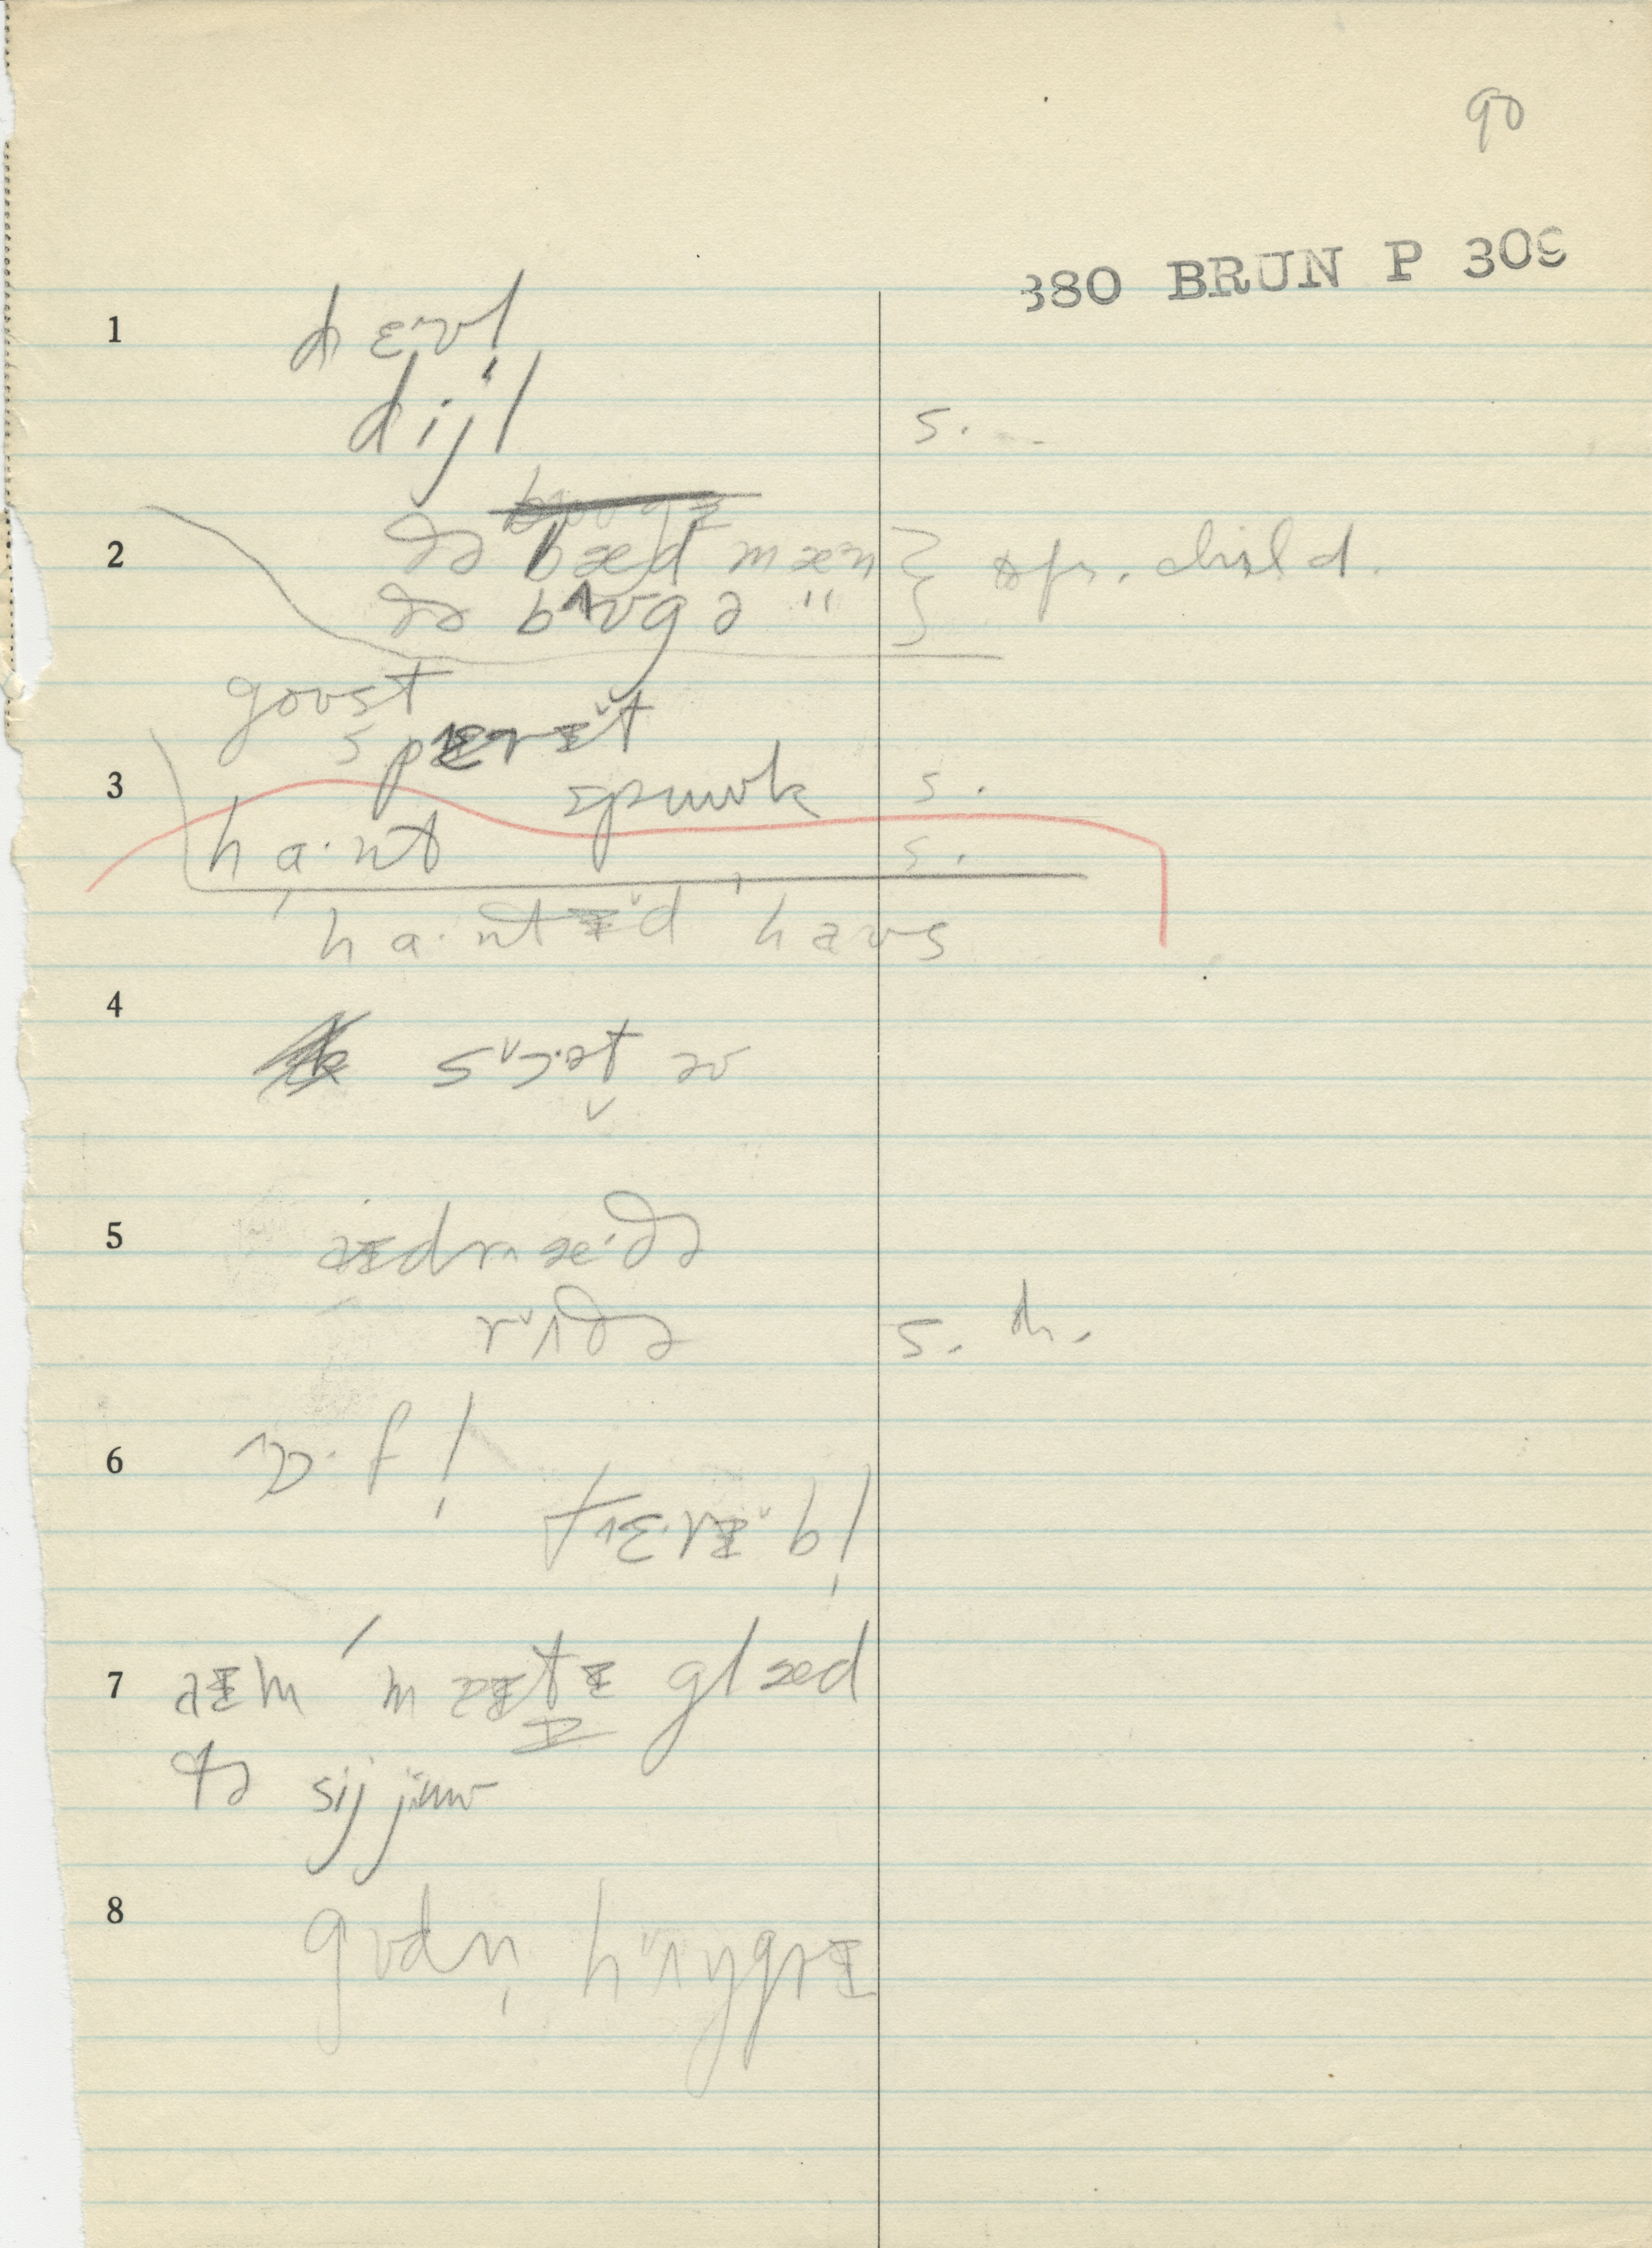 90
380 BRUN P 309
1 dɛ^vl̩
dijl s.
2 ðə bæd mæ^ən } to fr. child.
ðə bʌ^ʊgə "
goʊst
spɛrɪ̌t
3 spuʊk s.
ha·nt s.
ˌha·ntɪ̌d ˈhaʊs
4 sɔ̌·ət əv
5 aɪdræ·ðə
rʌ̌ðə s. th.
6 ɔ·fl̩
tɛ·rɪ̌bl̩
7 aɪm ˈmaɪt̬ɪ glæd
tə sij juʊ
8 gʊdn̩ hʌ̌ŋgrɪ